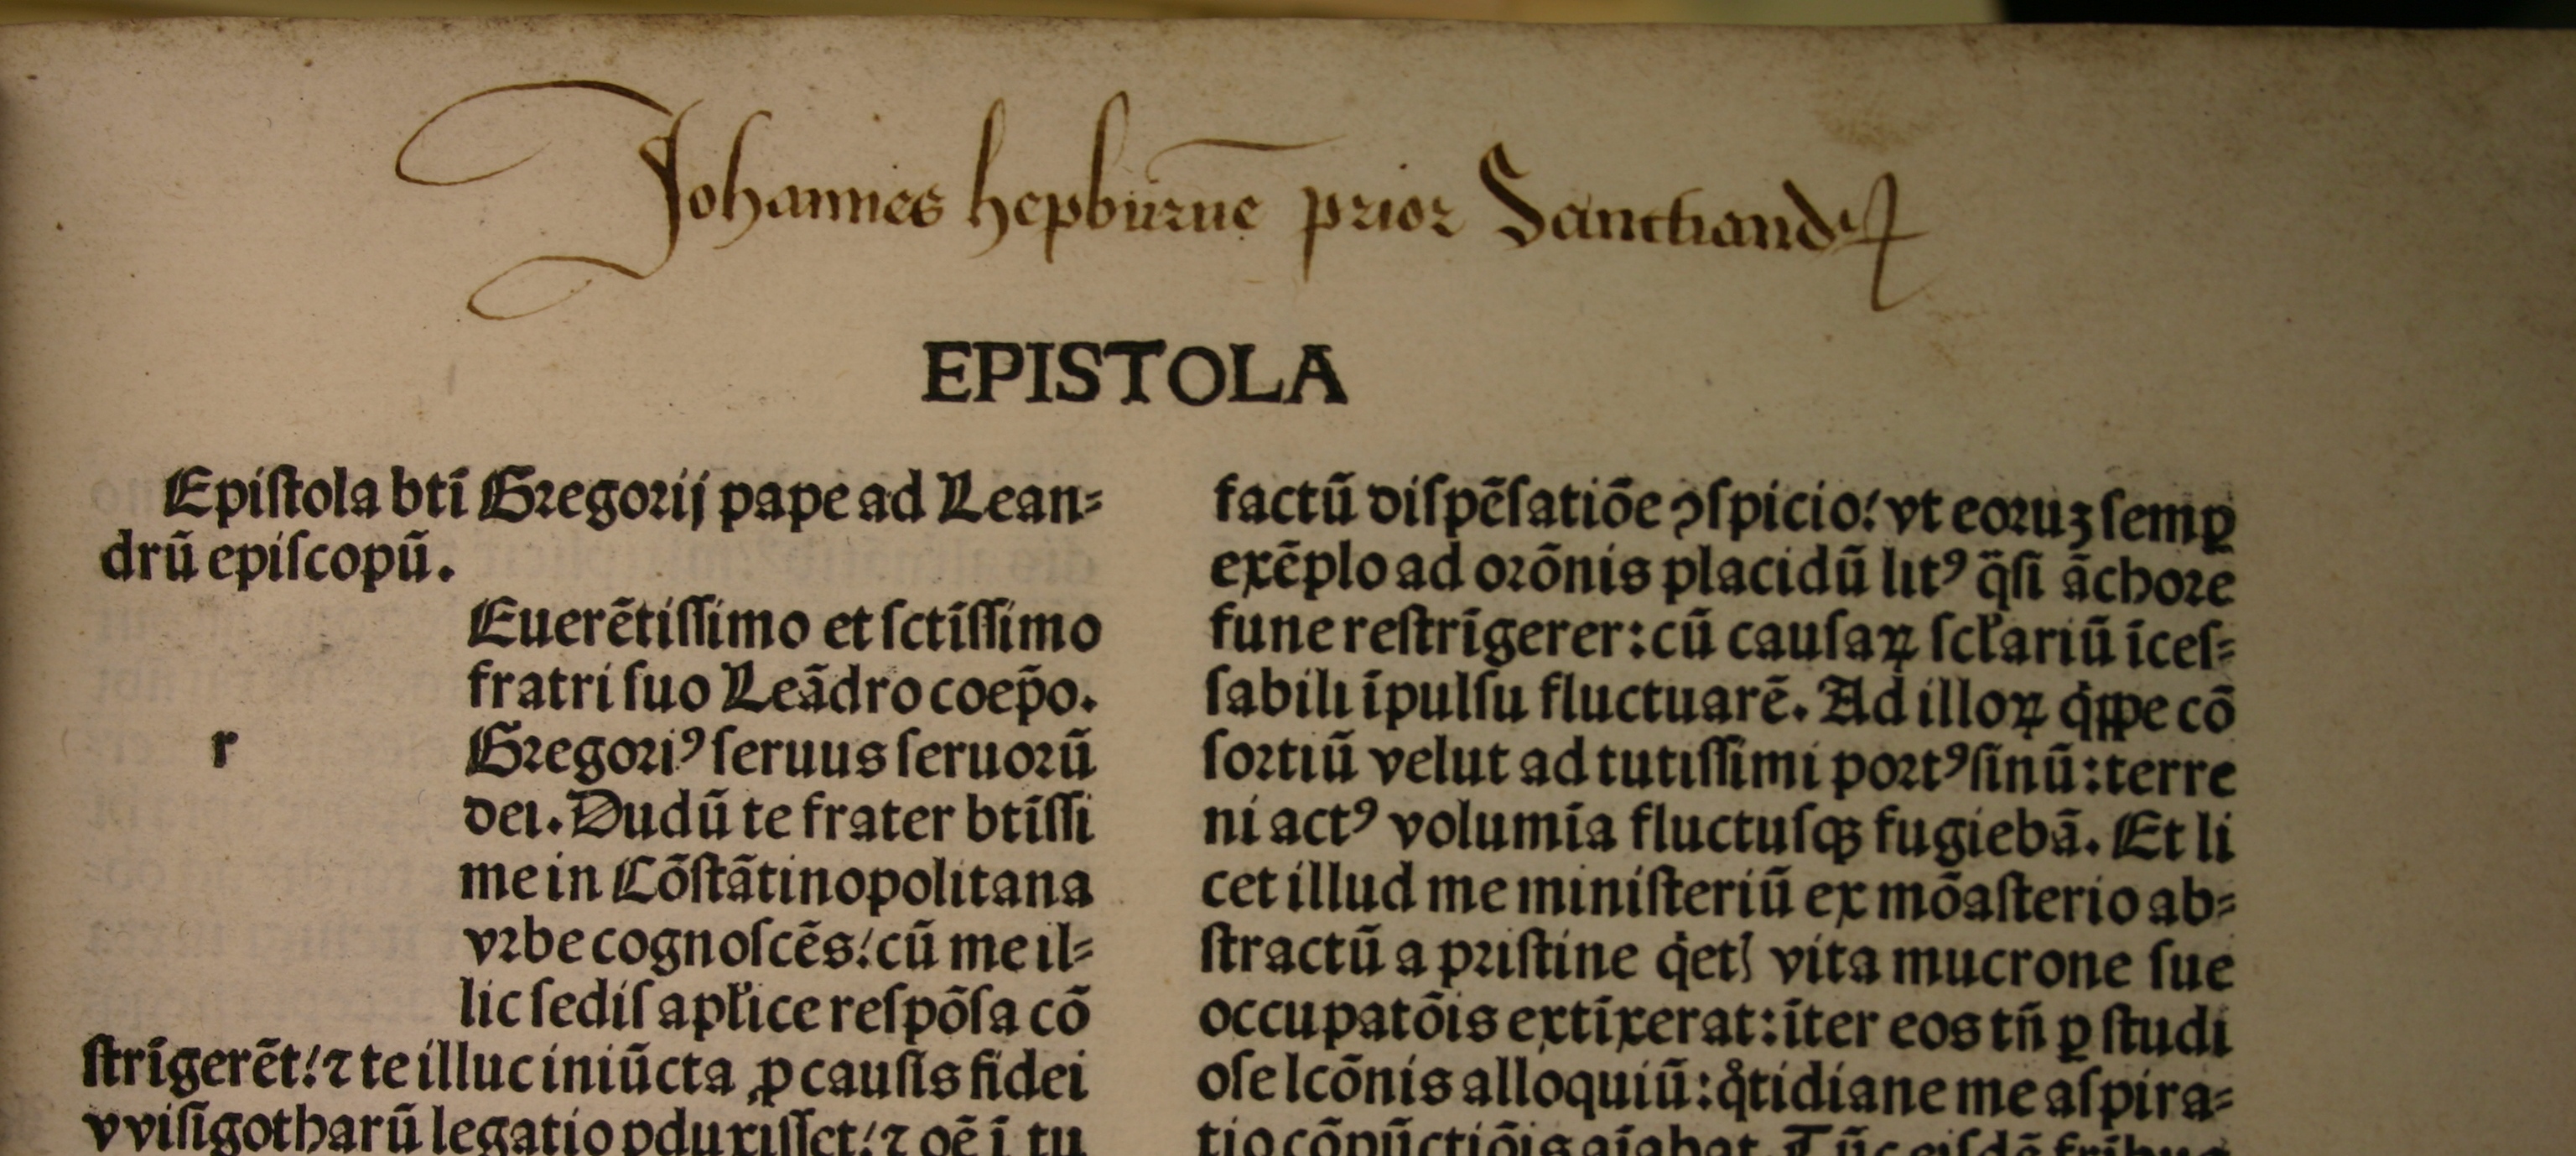 Johannes hepburne prior Sanctiandꝝ
EPISTOLA
Epiſtola bti̅ Gregorij pape ad Lean⸗
drū epiſcopū.
Euerētiſſimo et ſcti̅ſſimo
fratri ſuo Leādro coep̄o.
r
Gregoriꝰ ſeruus ſeruorū
dei. Dudū te frater bti̅ſſi
me in Cōſtātinopolitana
vrbe cognoſcēs: cū me il⸗
lic ſediſ apľice reſpōſa cō
ſtrīgerēt: ⁊ te illuc iniūcta ꝓ cauſis fidei
vviſigotharū legatio ꝑduxiſſet: ⁊ oē ī tu
factū diſpēſatiōe ꝯſpicio: vt eoruꝫ ſemꝑ
exēplo ad orōnis placidū litꝰ q̈ſi āchore
fune reſtrīgerer: cū cauſaꝝ ſcľariū īceſ⸗
ſabili īpulſu fluctuarē. Ad illoꝝ q̇ppe cō
ſortiū velut ad tutiſſimi portꝰ ſinū: terre
ni actꝰ volumīa fluctuſqꝫ fugiebā. Et li
cet illud me miniſteriū ex mōaſterio ab⸗
ſtractū a priſtine q̇etꝭ vita mucrone ſue
occupatōis extīxerat: īter eos tn̄ ꝑ ſtudi
oſe lcōnis alloquiū: qͦtidiane me aſpira⸗
tio cōpūctiōis aīabat. Tūc eiſdē fribus